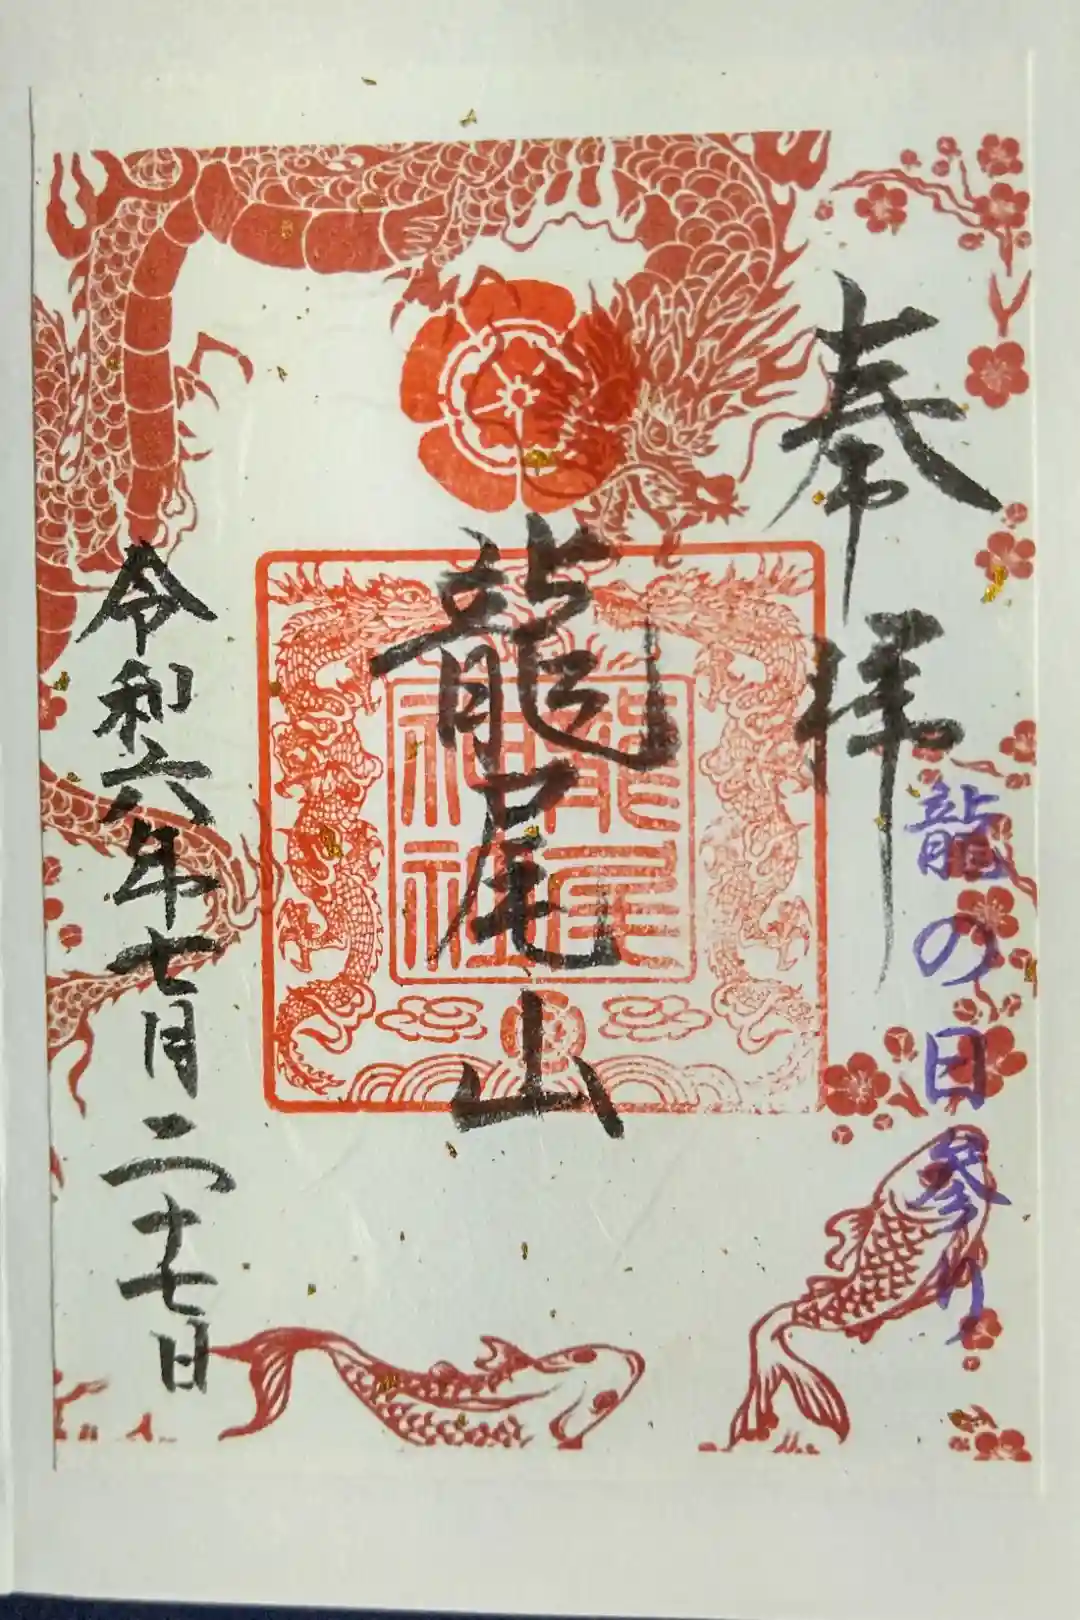 奉拝
龍の日参り
龍尾山
龍尾神社
令和六年七月二十七日